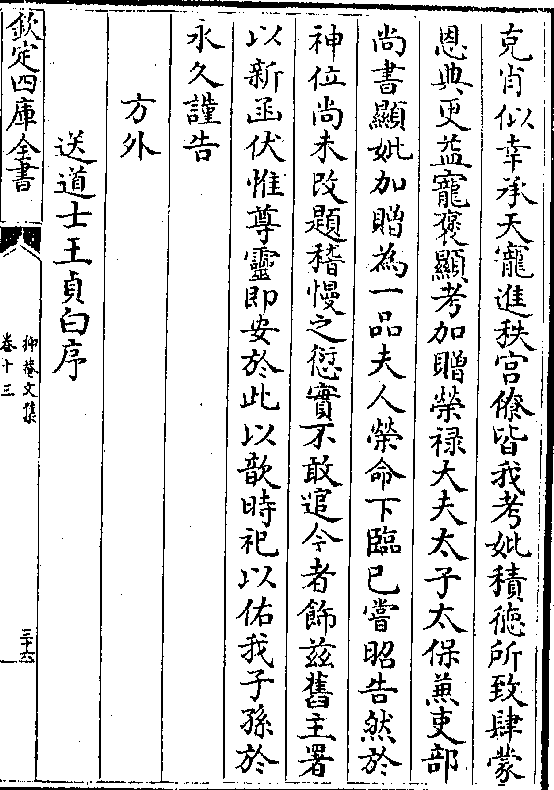 克肖似幸承天寵進秩宫僚皆我考妣積徳所致肆蒙
恩典更益寵褒顯考加贈榮禄大夫太子太保兼吏部
尚書顯妣加贈為一品夫人榮命下臨已嘗昭告然於
神位尚未改題稽慢之愆實不敢逭今者飾兹舊主署
以新函伏惟尊靈即安於此以歆時祀以佑我子孫於
永久謹告
方外
送道士王貞白序
欽定四庫全書
抑菴文集
卷十三
三十六